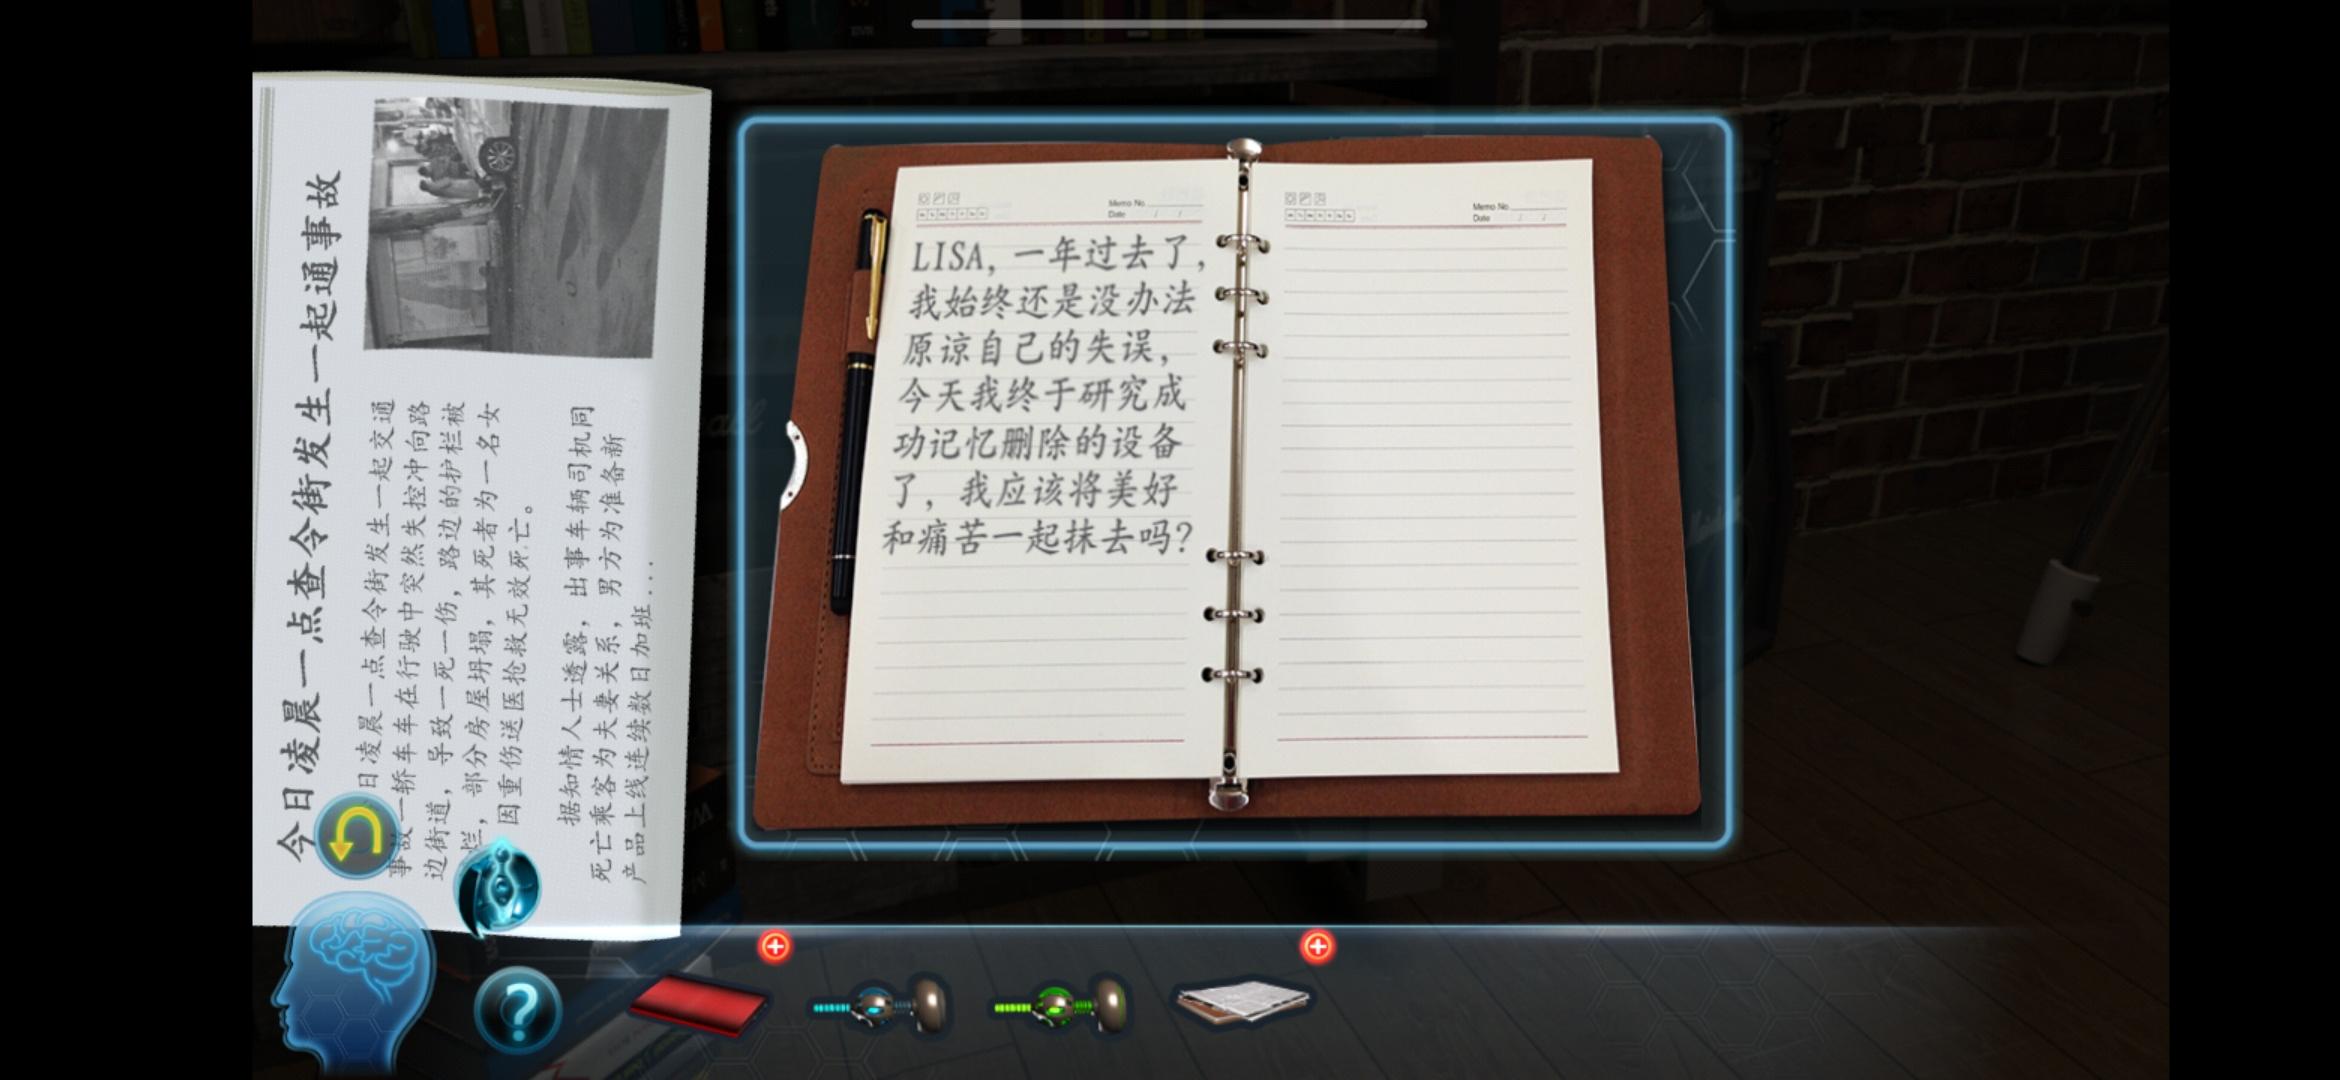 今日凌晨一点查令街发生一起通事故
日凌晨一点查令街发生一起交通
事故一轿车车在行驶中突然失控冲向路
边街道，导致一死一伤，路边的护栏被
拦，部分房屋坍塌，其死者为一名女
因重伤送医抢救无效死亡。
据知情人士透露，出事车辆司机同
死亡乘客为夫妻关系，男方为准备新
产品上线连续数日加班...
Memo No.
Date / /
LISA，一年过去了，
我始终还是没办法
原谅自己的失误，
今天我终于研究成
功记忆删除的设备
了，我应该将美好
和痛苦一起抹去吗？
Memo No.
Date / /
?